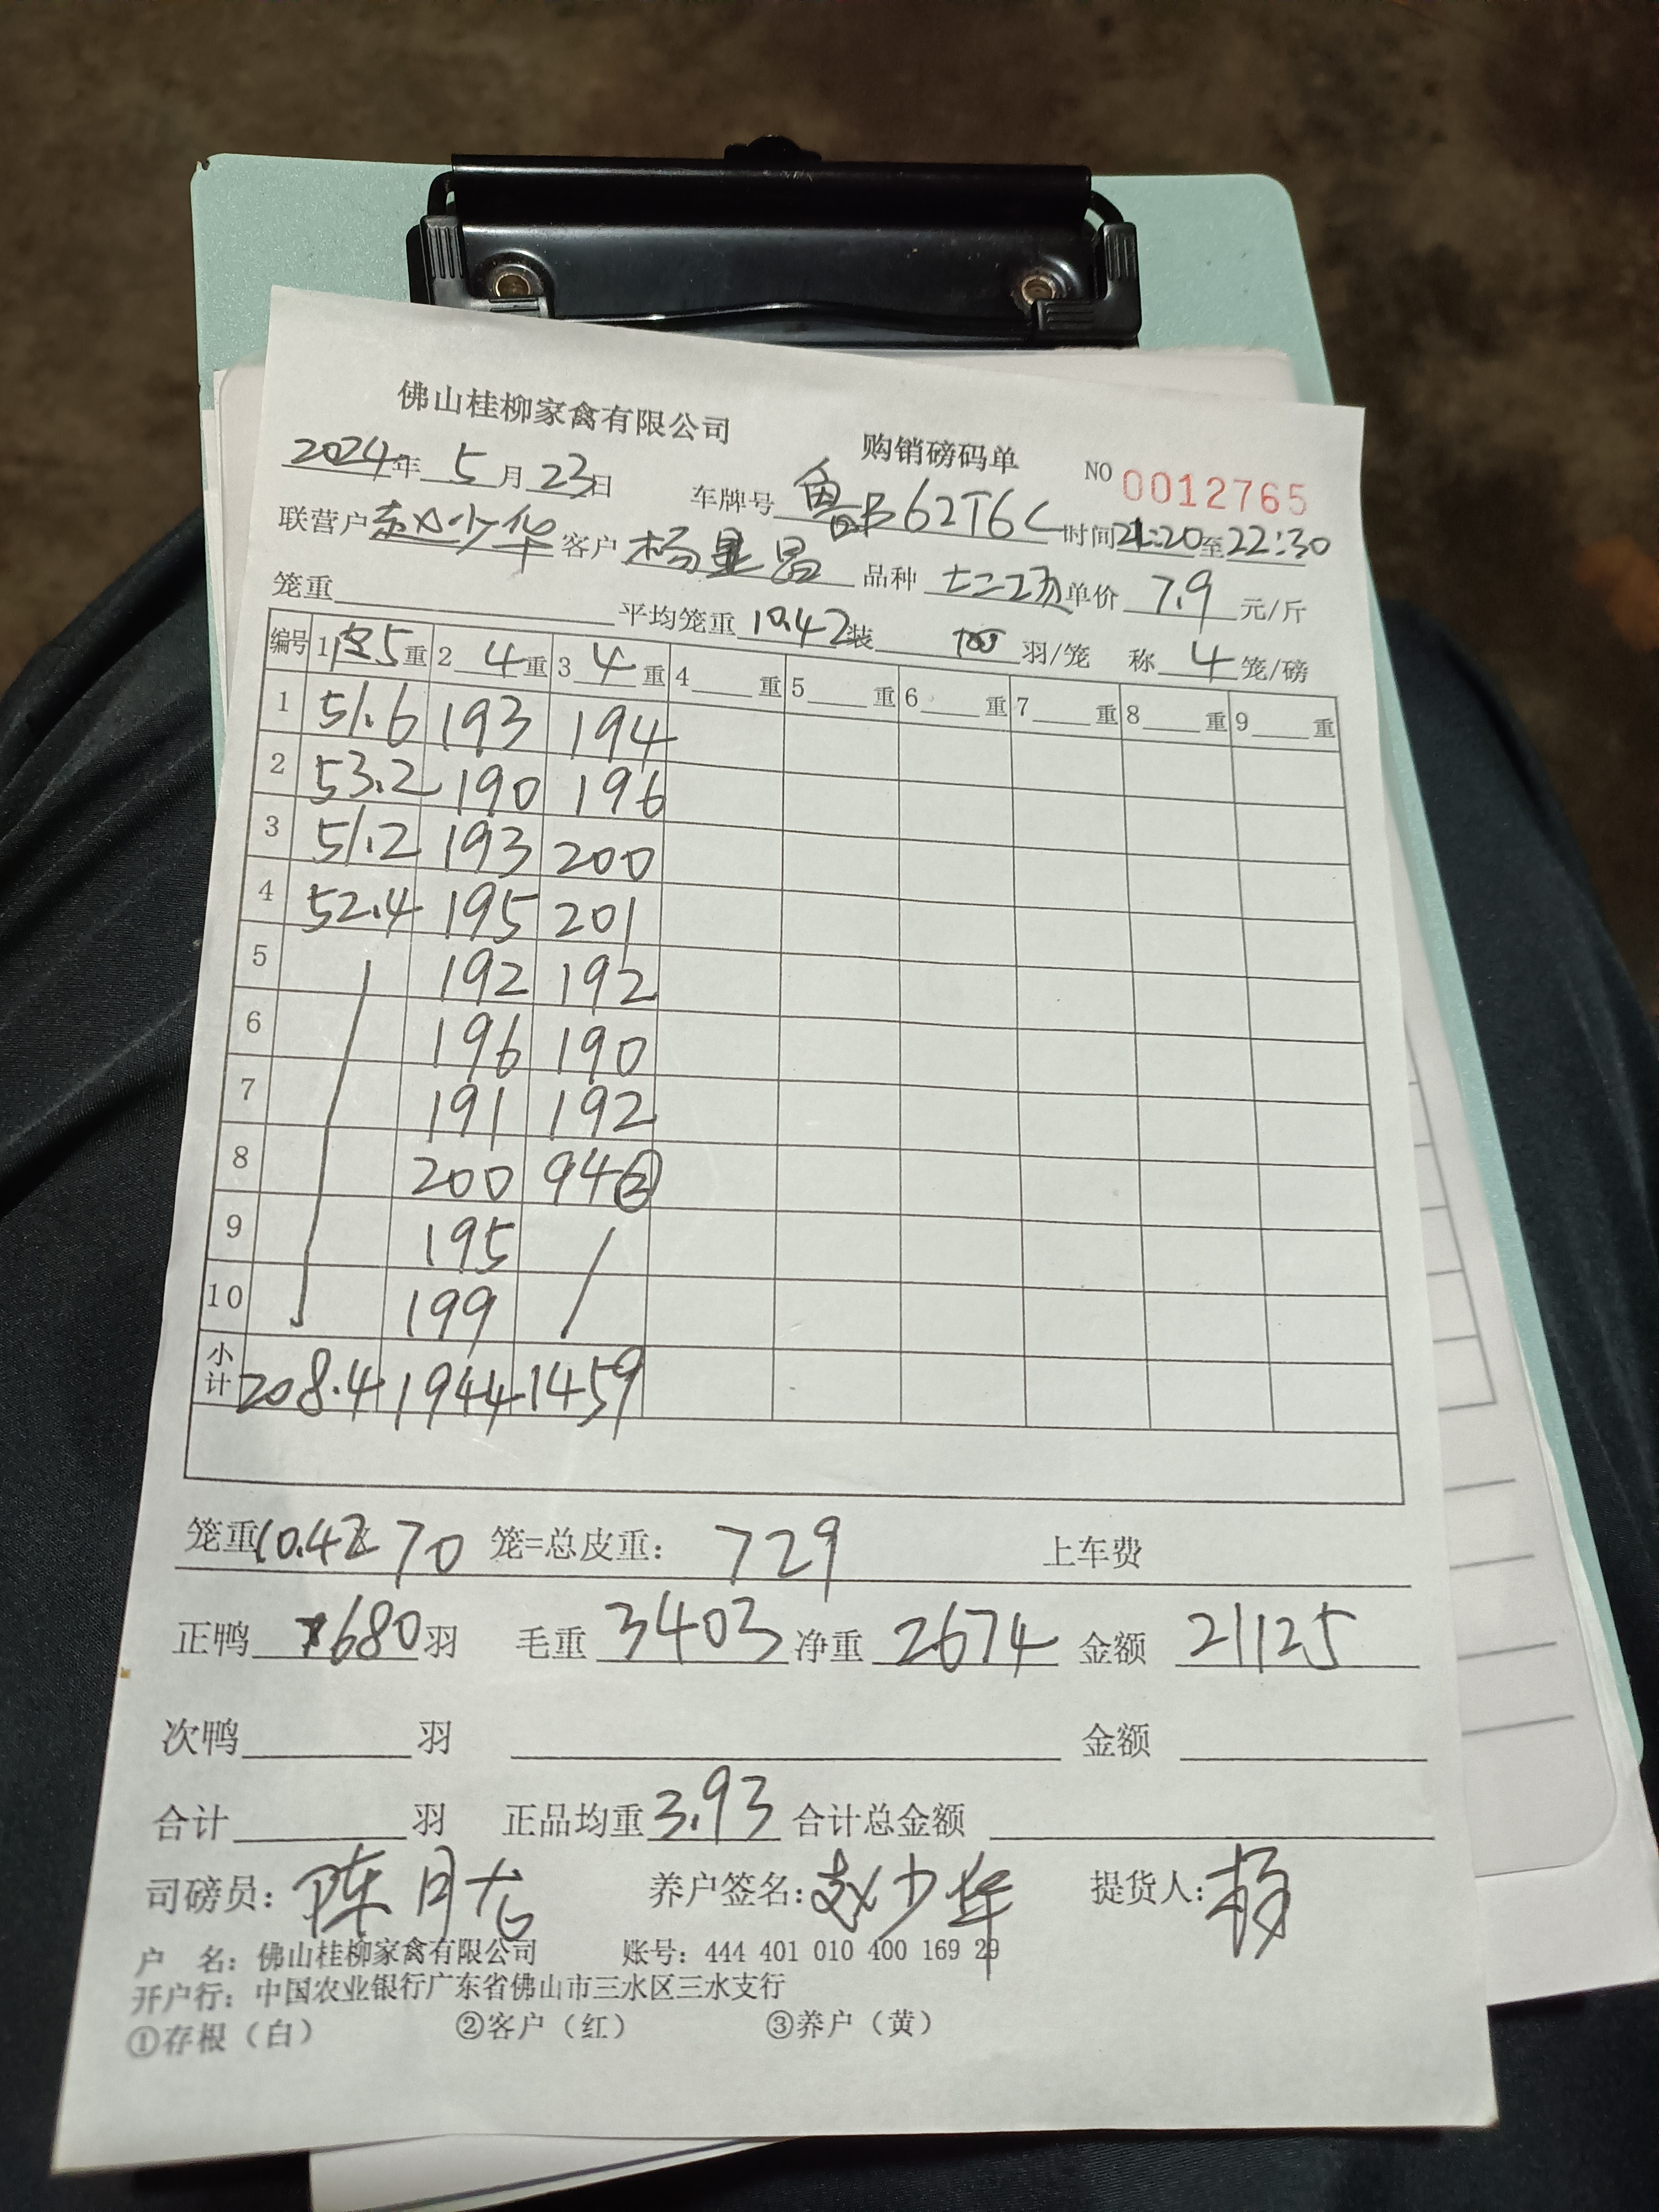 佛山桂柳家禽有限公司 购销磅码单 NO 0012765
2024年 5月 23日 车牌号 鲁B62T6C 时间 21:20至22:30
联营户 赵少华 客户 杨显昌 品种 七二场 单价 7.9 元/斤
笼重 平均笼重 10.42 装 羽/笼 称 4 笼/磅
编号 1 空5重 2 4重 3 4重 4 重 5 重 6 重 7 重 8 重 9 重
1 51.6 193 194
2 53.2 190 196
3 51.2 193 200
4 52.4 195 201
5 192 192
6 196 190
7 191 192
8 200 94②
9 195 /
10 199
小计 208.4 1944 1459
笼重10.42×70 笼=总皮重: 729 上车费
正鸭 680羽 毛重 3403 净重 2674 金额 21125
次鸭 羽 金额
合计 羽 正品均重 3.93 合计总金额
司磅员: 陈月龙 养户签名: 赵少华 提货人: 杨
户 名: 佛山桂柳家禽有限公司 账号: 444 401 010 400 169 29
开户行: 中国农业银行广东省佛山市三水区三水支行
①存根（白） ②客户（红） ③养户（黄）